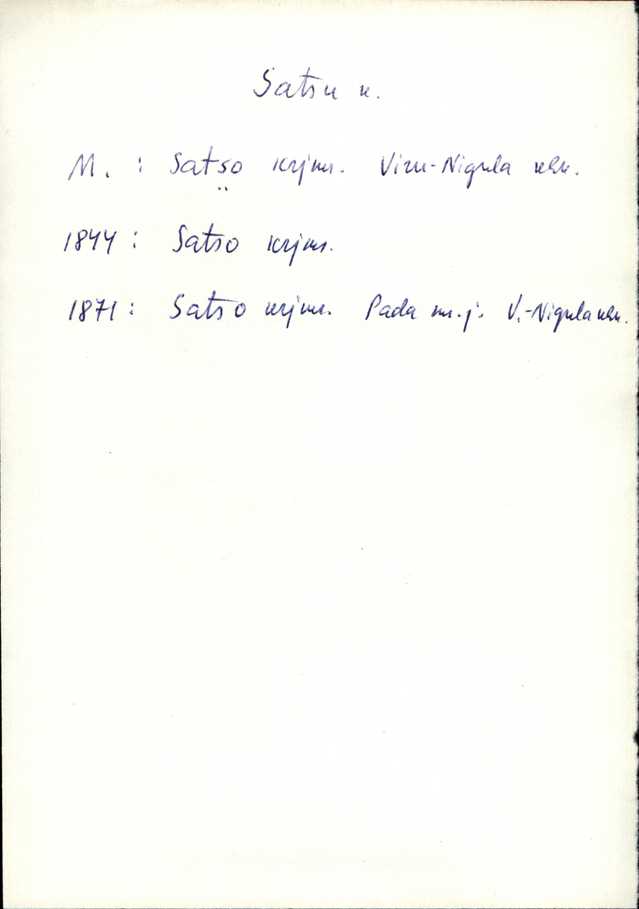 Satsu k.
M. : Satso krjms. Viru-Nigula khk.
1844 : Satso krjms.
1871 : Satso krjms. Pada m. j. V.-Nigula khk.